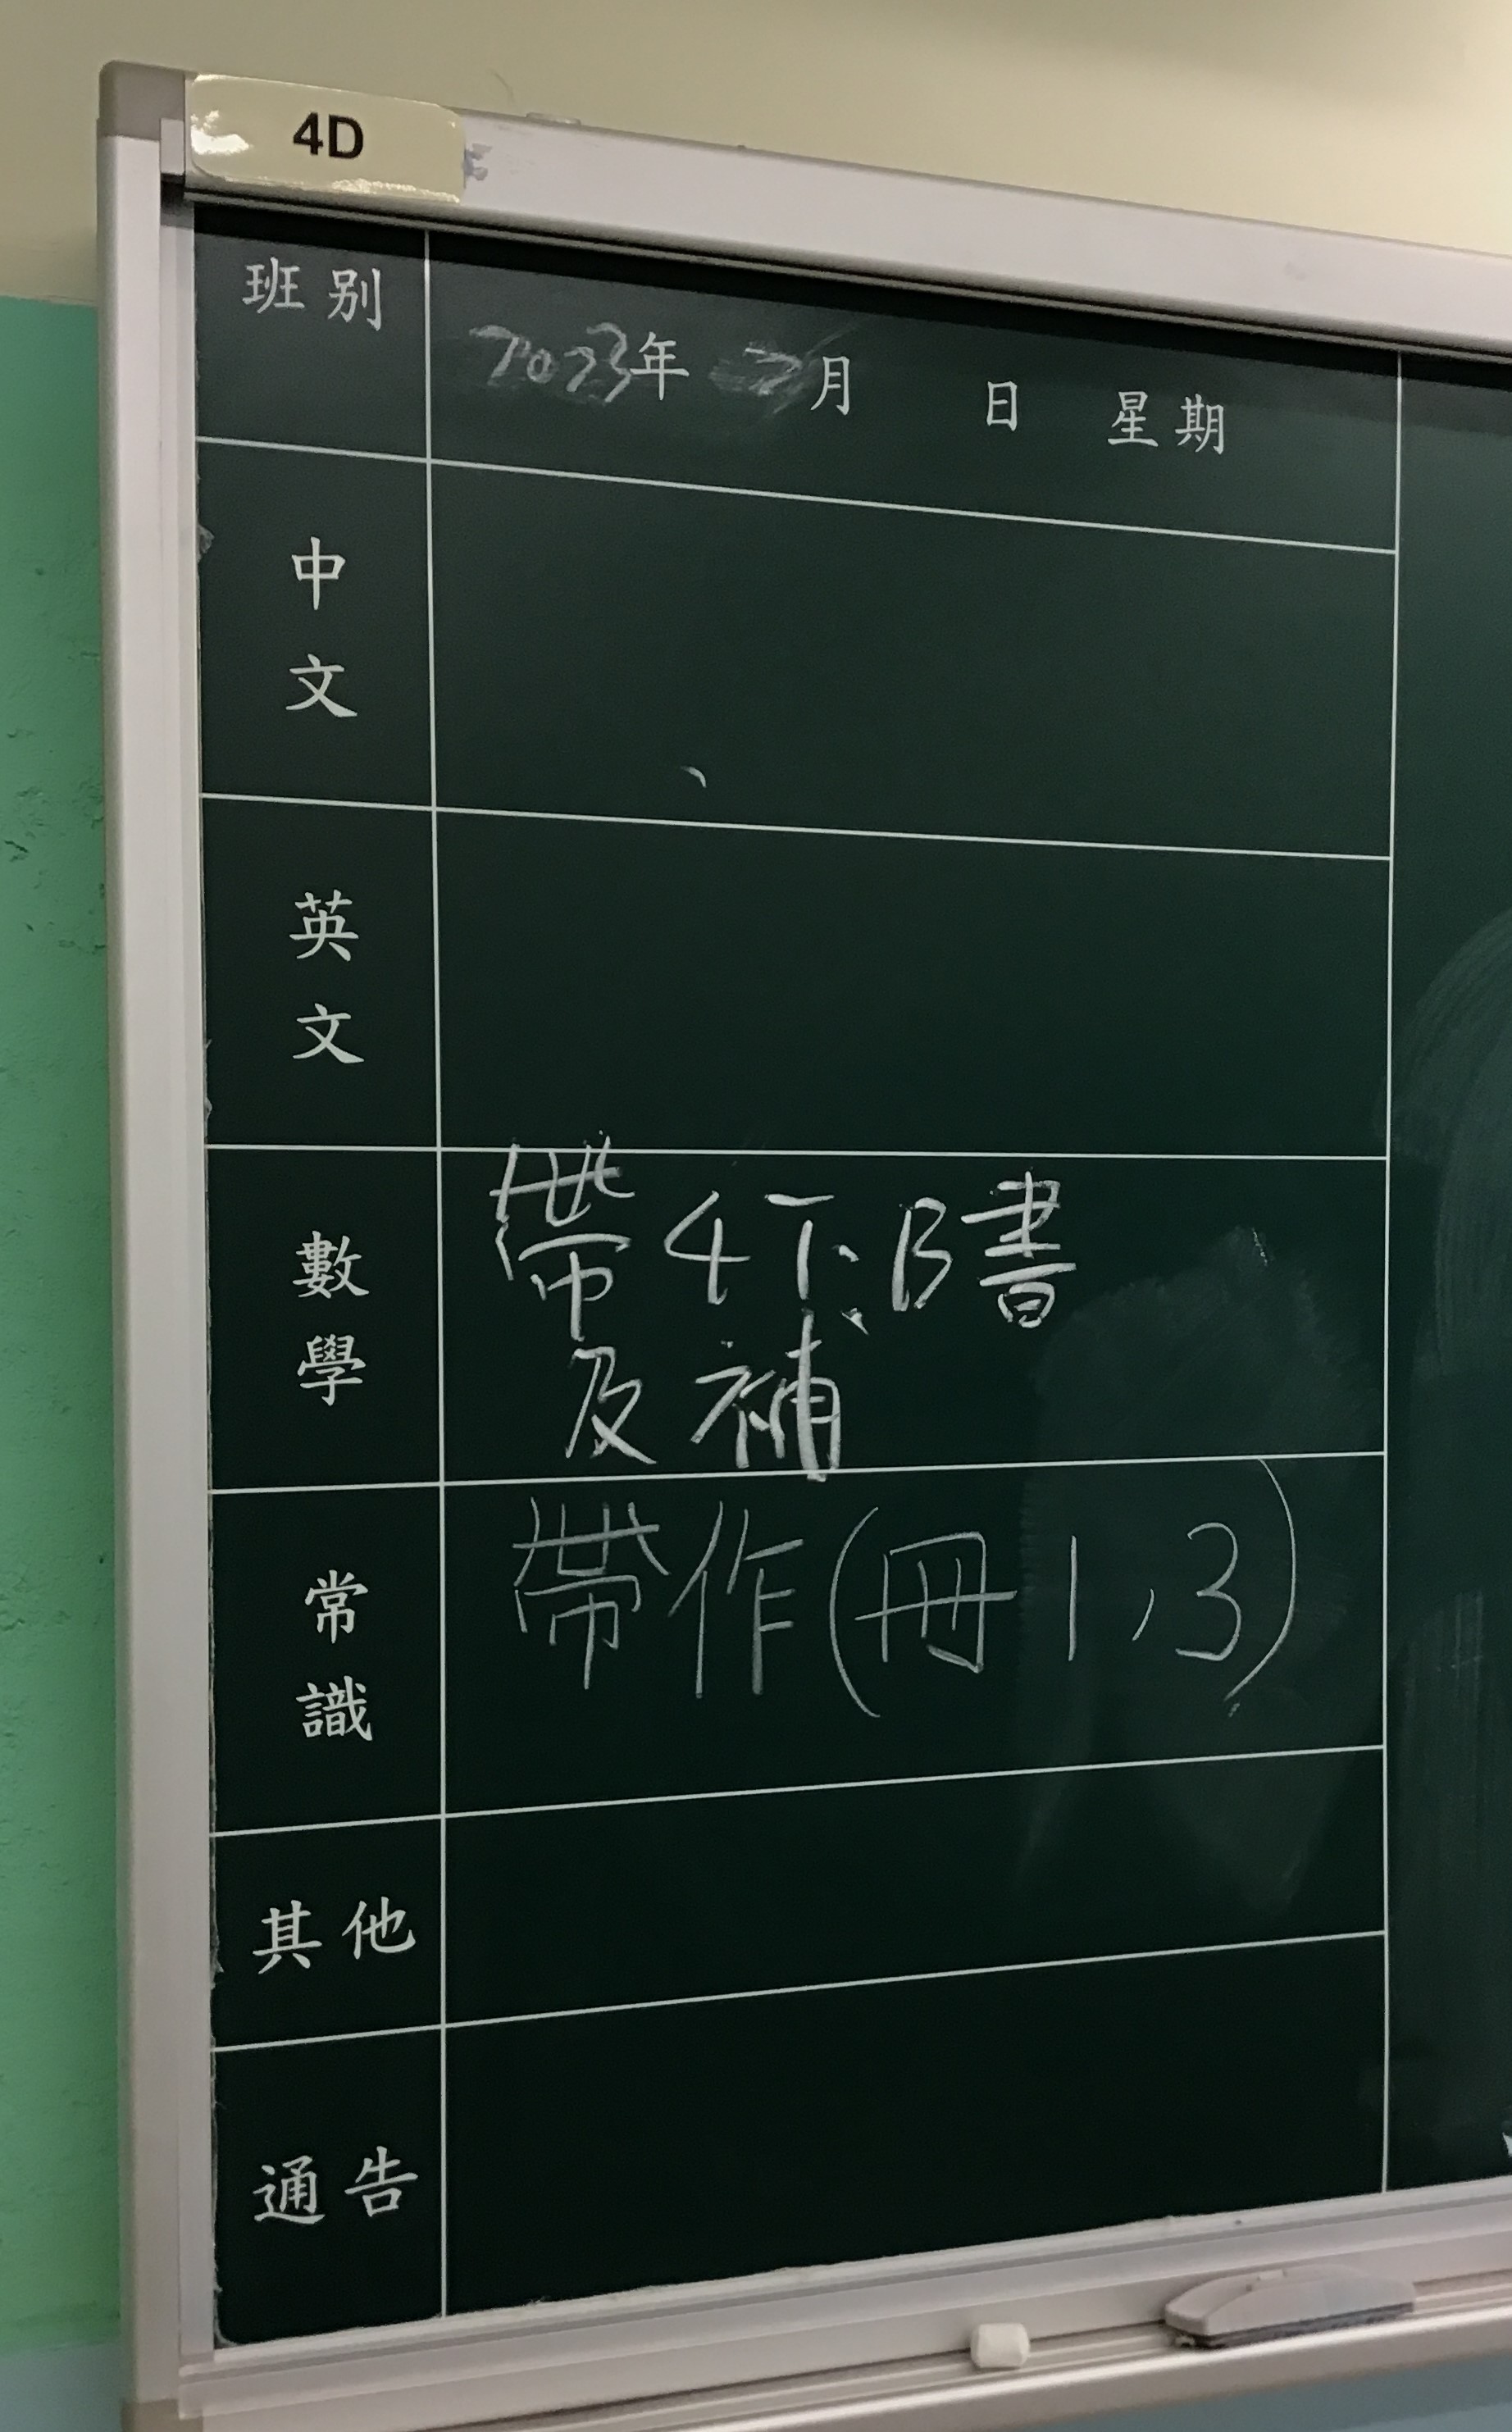 4D
班別
2023年 月 日 星期
中文
英文
數學
帶4下B書
及補
常識
帶作(冊1,3)
其他
通告